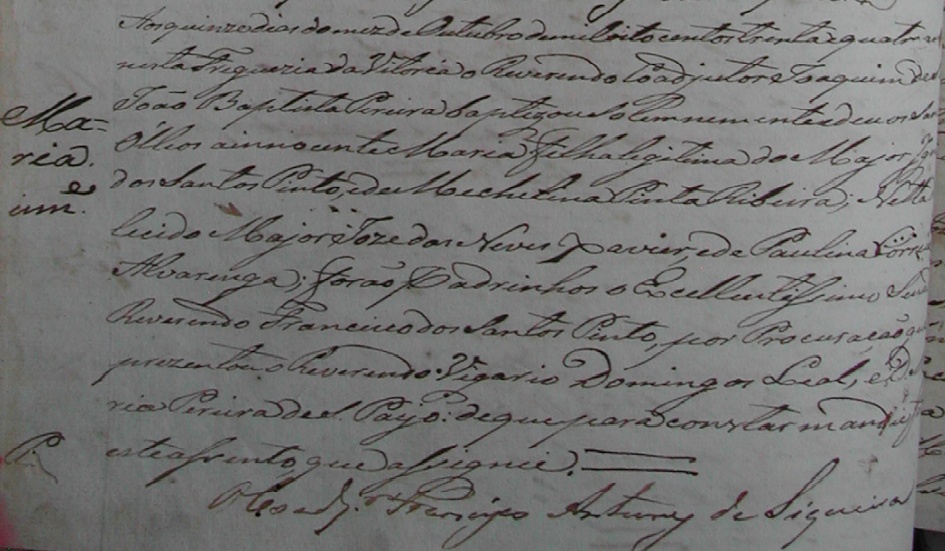 Aos quinze dias do mez de Outubro de mil oito centos trenta e quatro
nesta Freguezia da Vitoria o Reverendo Coadjutor Joaquim de
Ma=
João Baptista Pereira baptizou Solemnemente e deu os San
ria.
Óleos a innocente Maria Filha legitima do Major
e
dos Santos Pinto, e de Michelina Pinta Ribeira; Netta
um.
lecido Major Joze das Neves Xavier, e de Paulina
Alvarenga; forão Padrinhos o Excellentissimo Senr
Reverendo Francisco dos Santos Pinto, por Procuração, que
prezentou o Reverendo Vigario Domingos Leal, e D.
ria Pereira de S. Payo: de que para constar mandei
este assento, que assignei.
O Coadj.or Antunes de Siqueira